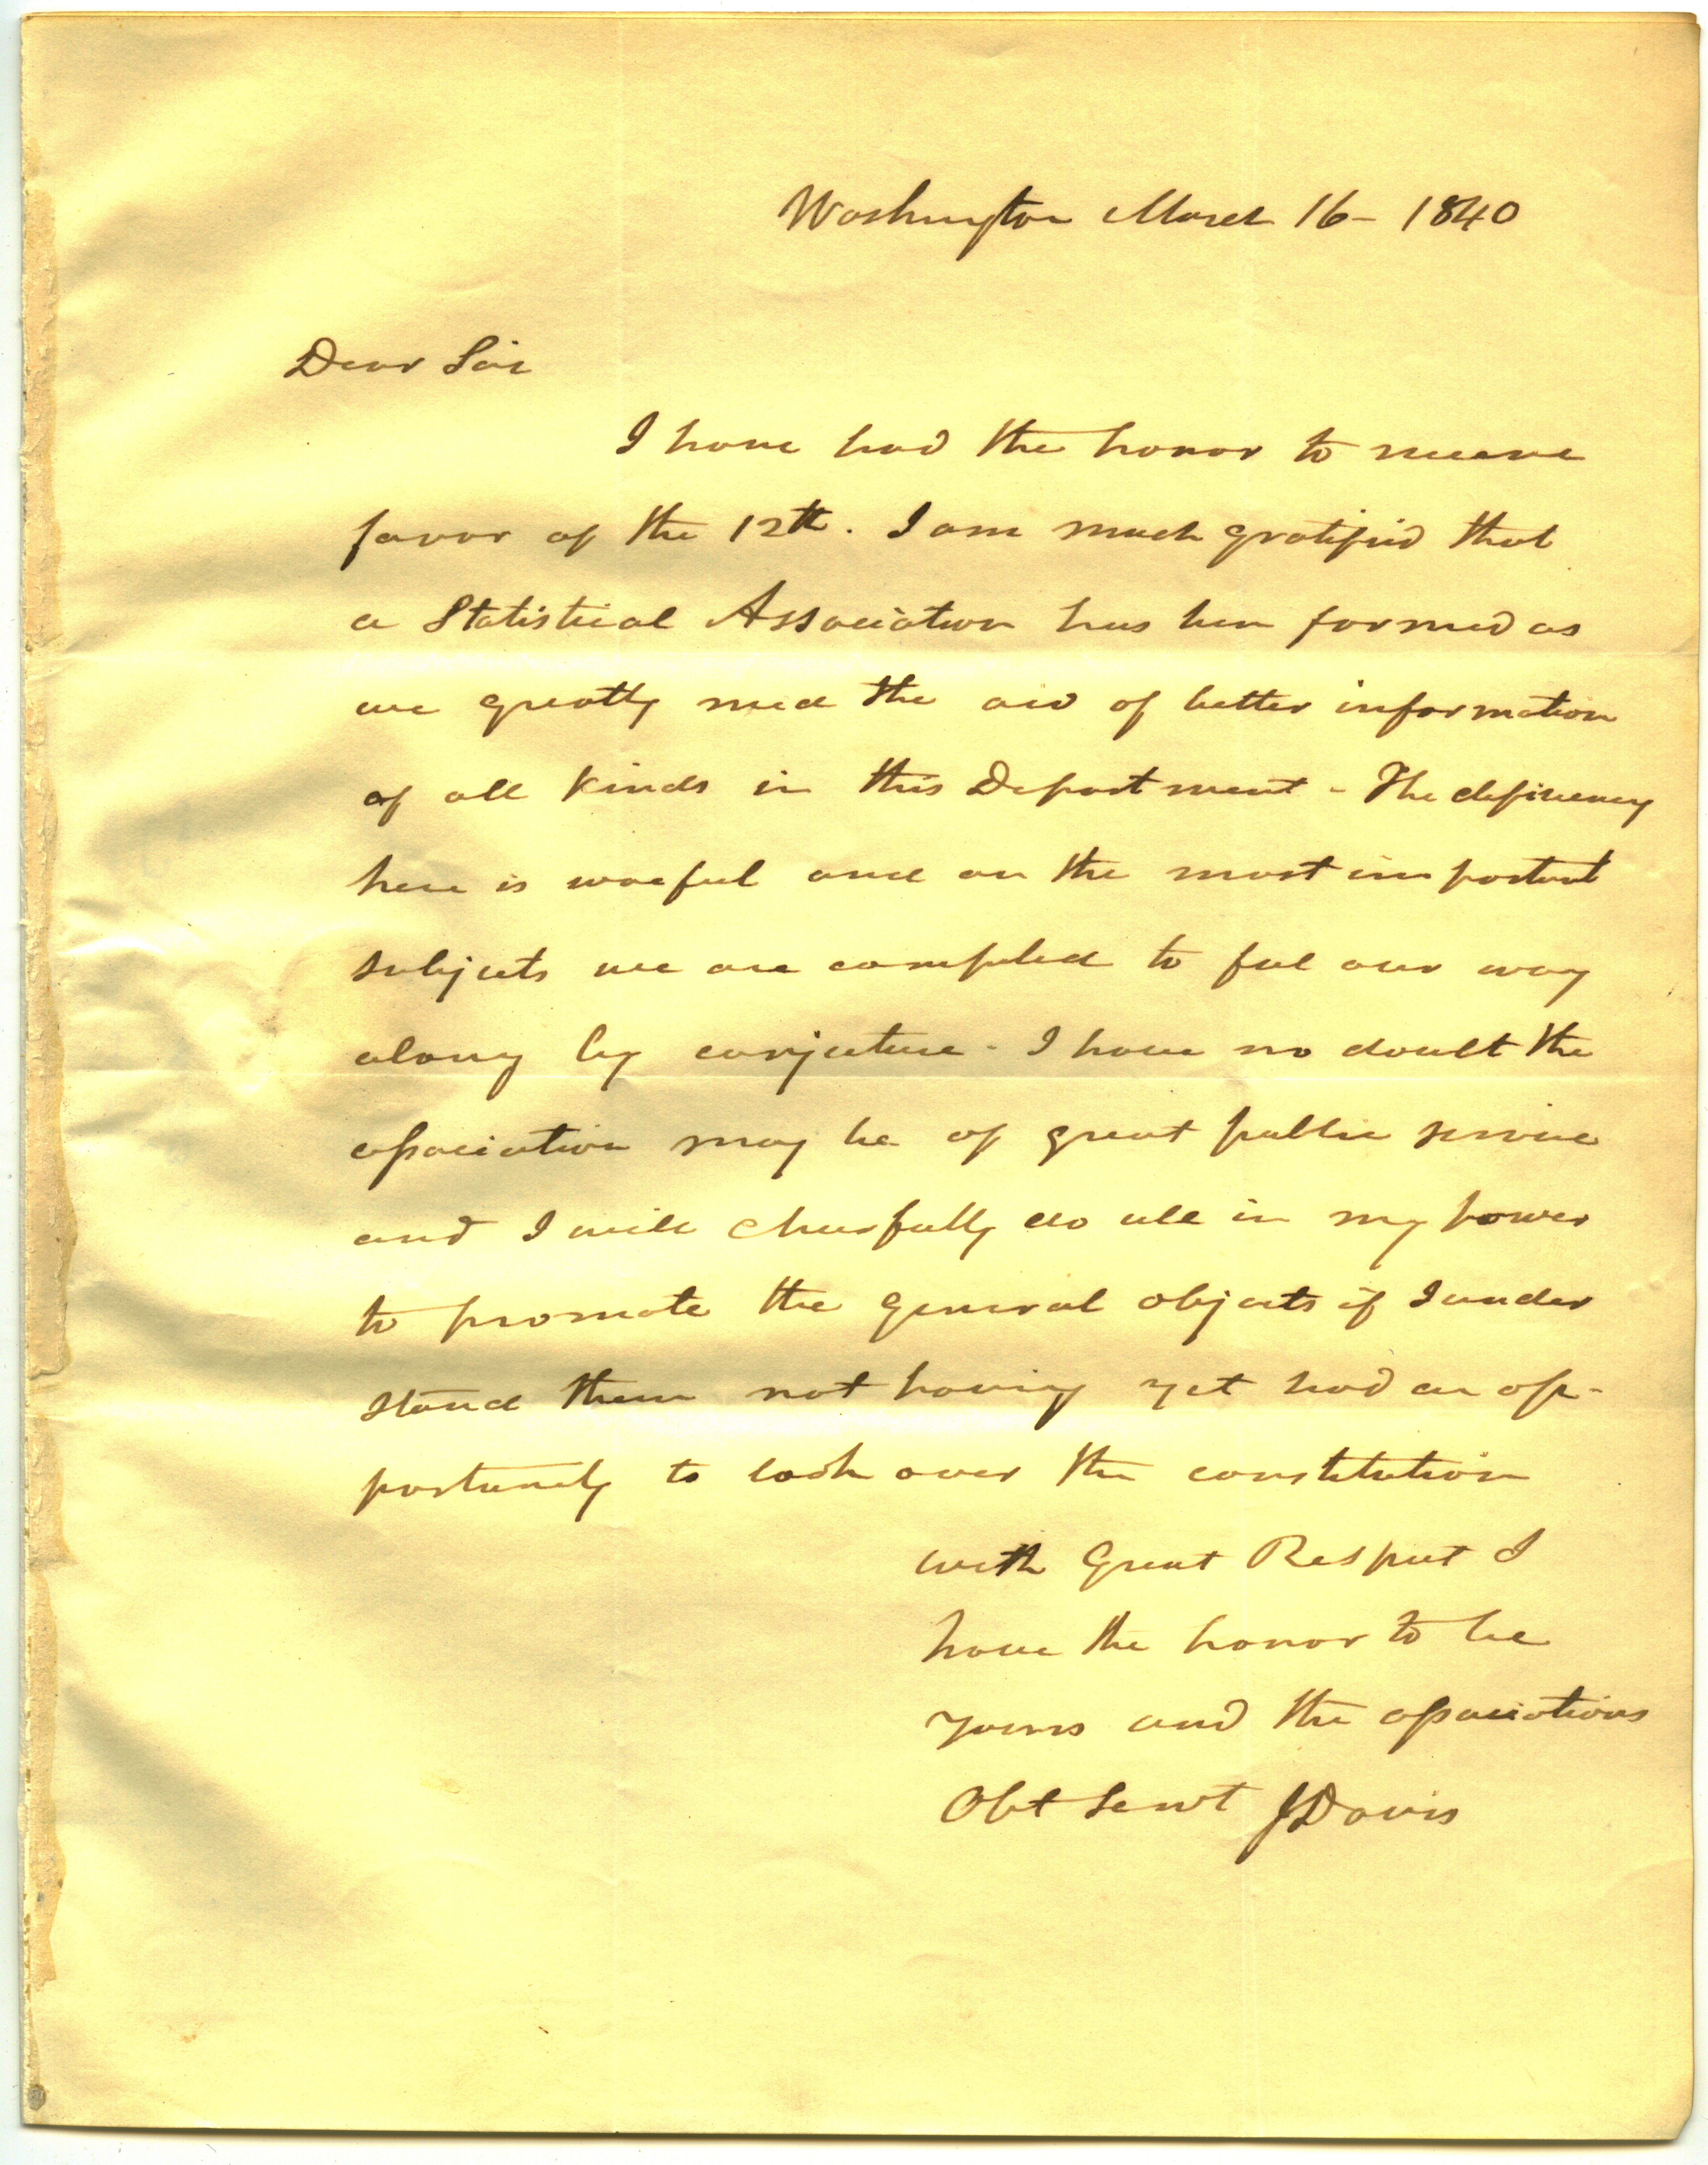 Washington March 16 - 1840
Dear Sir
I have had the honor to receive
favor of the 12th. I am much gratified that
a Statistical Association has been formed as
we greatly need the aid of better information
of all kinds in this Department - The deficiency
here is woeful and on the most important
subjects we are compelled to feel our way
along by conjecture - I have no doubt the
association may be of great public service
and I will cheerfully do all in my power
to promote the general objects if I under
stand them not having yet had an op-
portunity to look over the constitution
with Great Respect I
have the honor to be
yours and the associations
Obt Servt J Davis